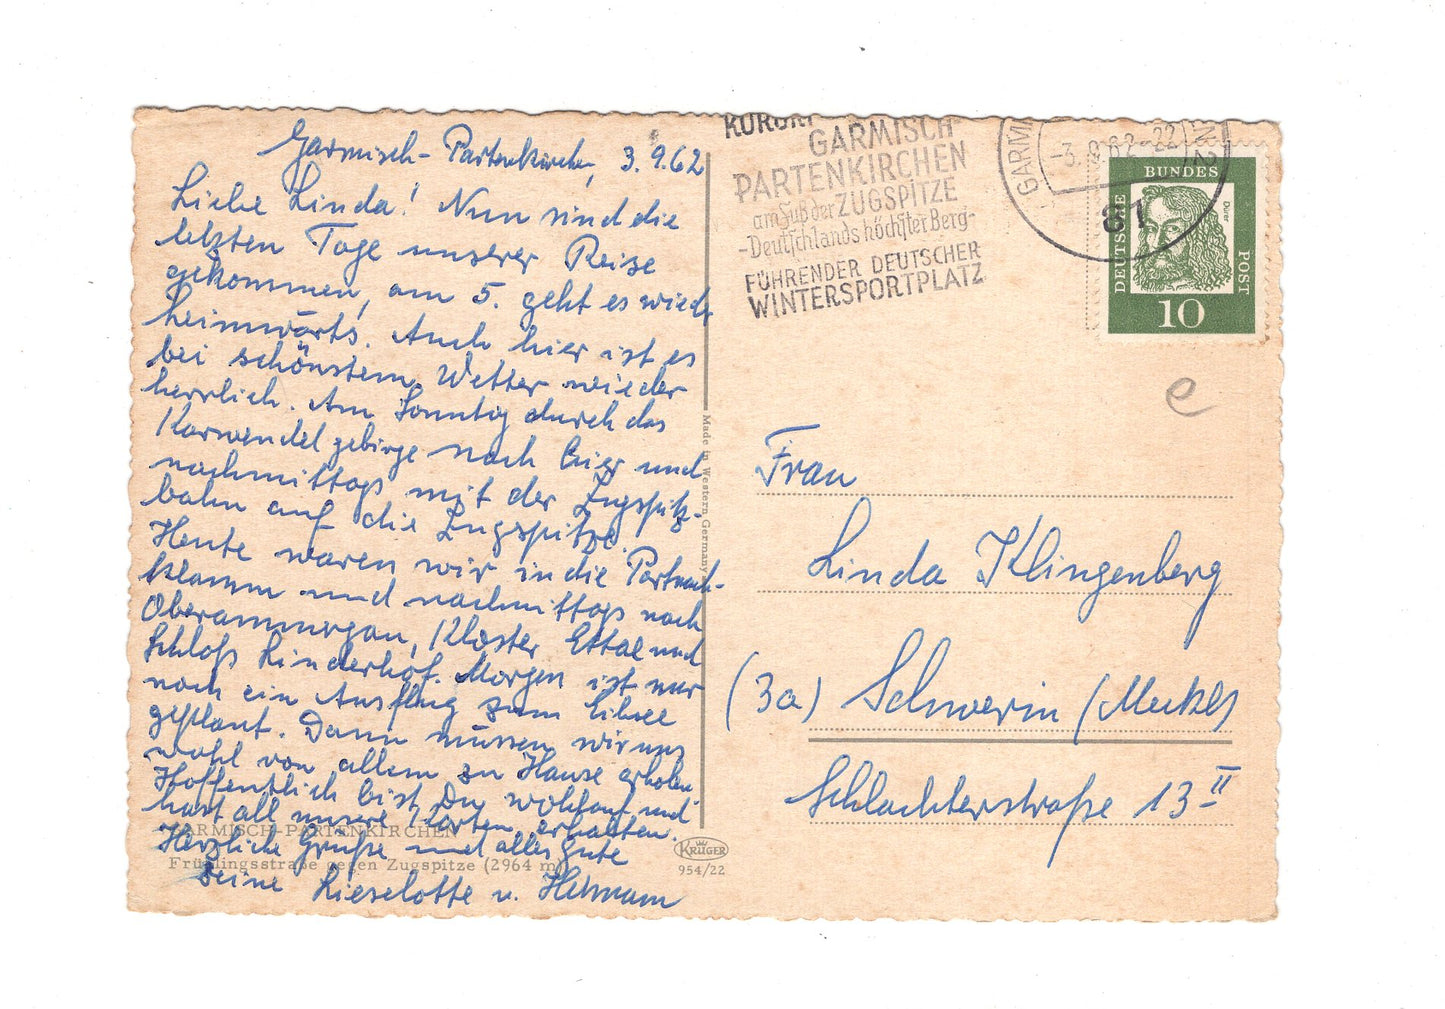 Garmisch-Partenkirchen, 3.9.62
Liebe Linda! Nun sind die
letzten Tage unserer Reise
gekommen, am 5. geht es wieder
heimwärts. Auch hier ist es
bei schönstem Wetter wieder
herrlich. Am Sonntag durch das
Karwendelgebirge nach hier und
nachmittags mit der Zugspitz-
bahn auf die Zugspitze.
Heute waren wir in die Partnach-
klamm und nachmittags nach
Oberammergau, Kloster Ettal und
Schloß Linderhof. Morgen ist nur
noch ein Ausflug zum Eibsee
geplant. Dann müssen wir uns
wohl von allem zu Hause erholen.
Hoffentlich bist Du wohlauf und
hast all unsere Karten erhalten.
Herzliche Grüße und alles Gute
Deine Lieselotte u. Hermann
GARMISCH-PARTENKIRCHEN
Frühlingsstraße gegen Zugspitze (2964 m)
Made in Western Germany
KRÜGER
954/22
KURORT
GARMISCH-
PARTENKIRCHEN
am Fuß der ZUGSPITZE
-Deutschlands höchster Berg-
FÜHRENDER DEUTSCHER
WINTERSPORTPLATZ
GARMI
-3.9.62-22
EN 2
81
DEUTSCHE
BUNDES
POST
Dürer
10
e
Frau
Linda Klingenberg
(3a) Schwerin (Meckl)
Schlachterstraße 13 II